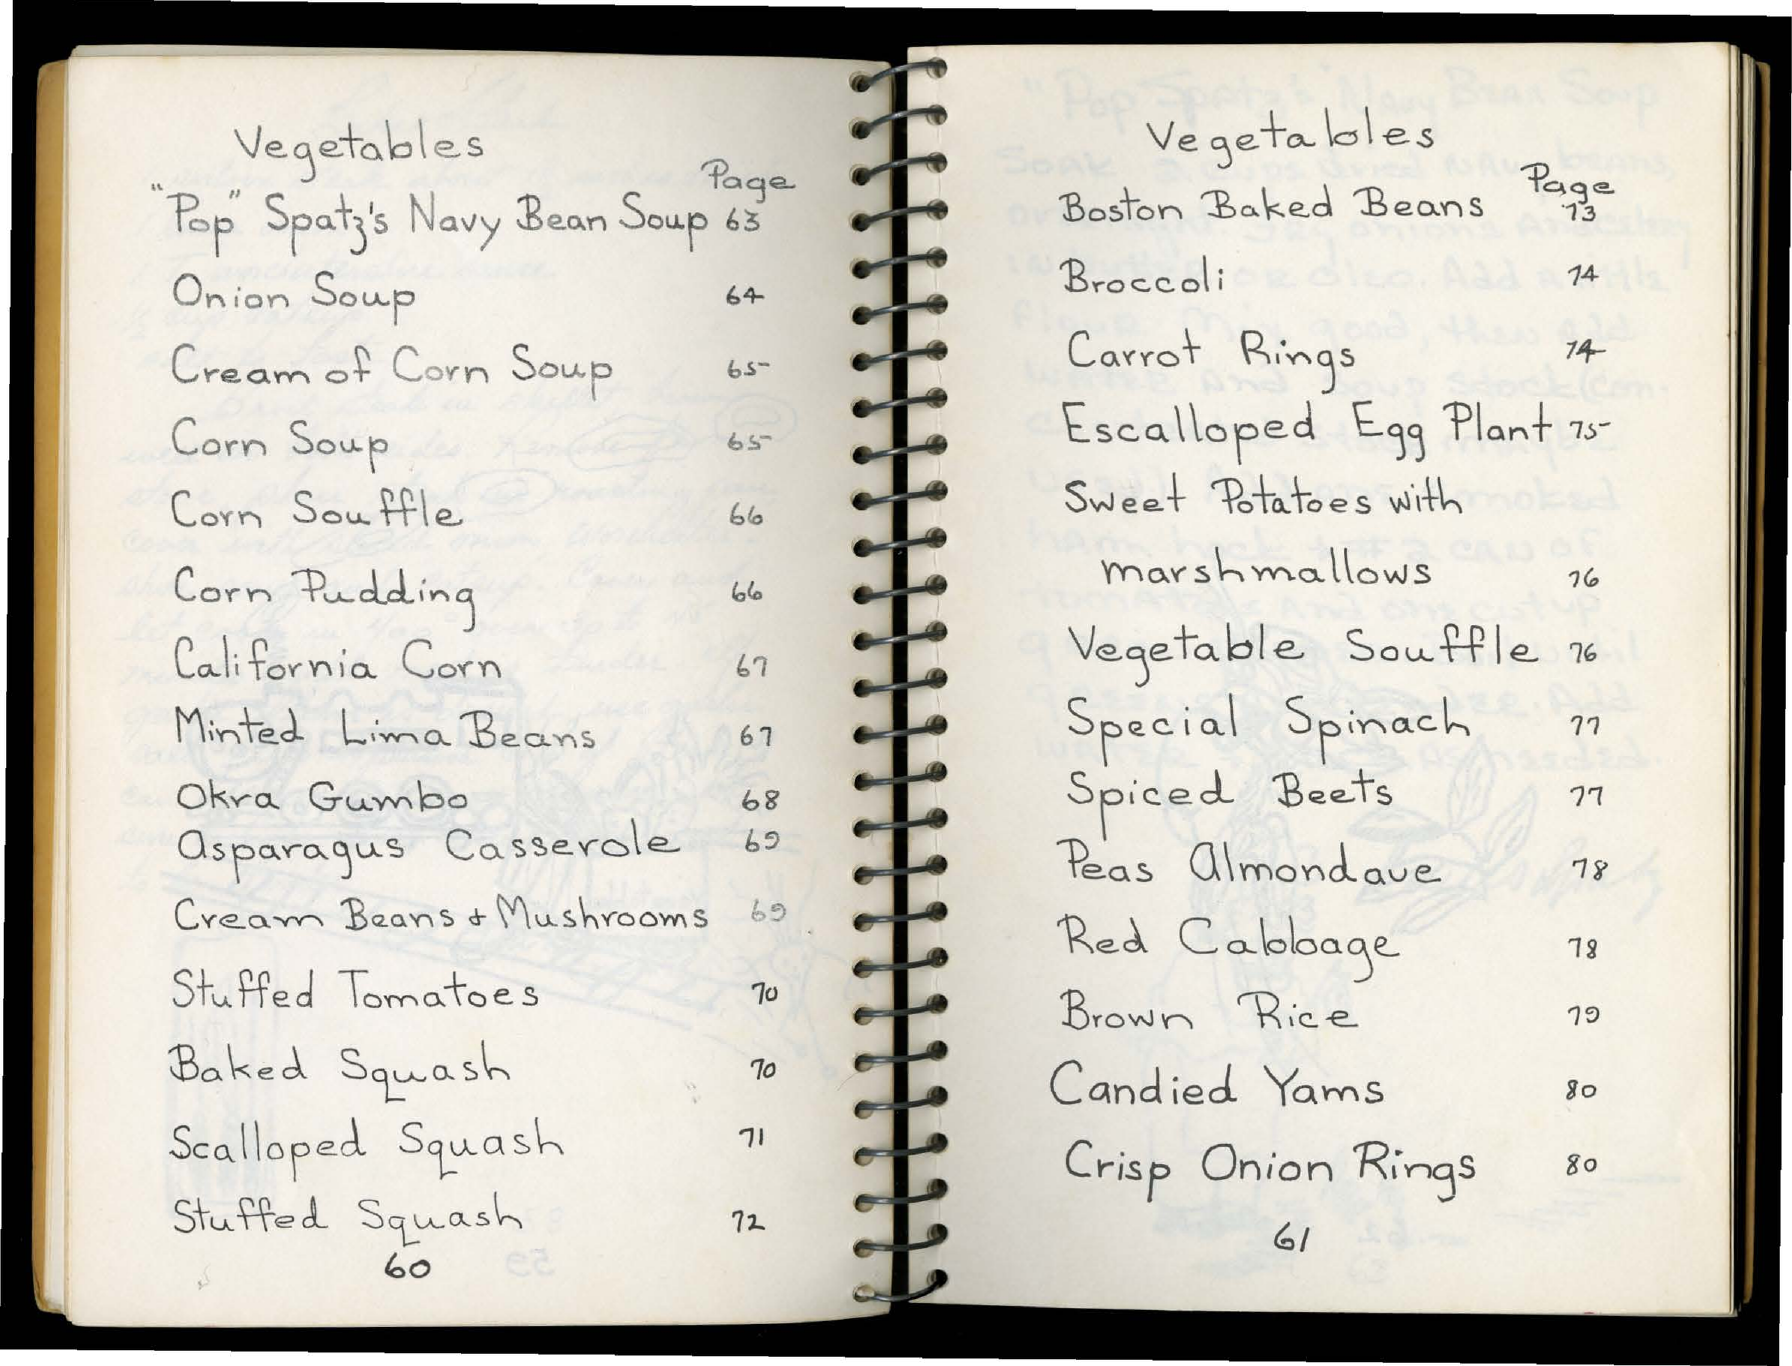 Vegetables
Page
"Pop" Spatz's Navy Bean Soup 63
Onion Soup 64
Cream of Corn Soup 65
Corn Soup 65
Corn Souffle 66
Corn Pudding 66
California Corn 67
Minted Lima Beans 67
Okra Gumbo 68
Asparagus Casserole 69
Cream Beans & Mushrooms 69
Stuffed Tomatoes 70
Baked Squash 70
Scalloped Squash 71
Stuffed Squash 72
60
Vegetables
Page
Boston Baked Beans 73
Broccoli 74
Carrot Rings 74
Escalloped Egg Plant 75
Sweet Potatoes with
marshmallows 76
Vegetable Souffle 76
Special Spinach 77
Spiced Beets 77
Peas Almondave 78
Red Cabbage 78
Brown Rice 79
Candied Yams 80
Crisp Onion Rings 80
61